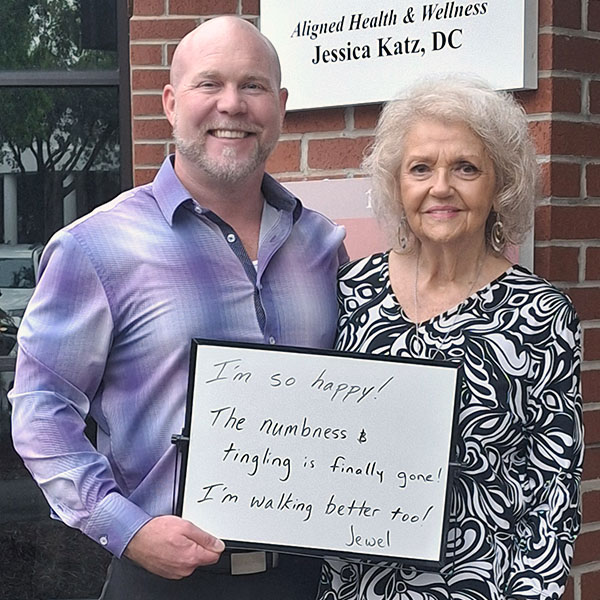 Aligned Health & Wellness
Jessica Katz, DC
I'm so happy!
The numbness &
tingling is finally gone!
I'm walking better too!
Jewel